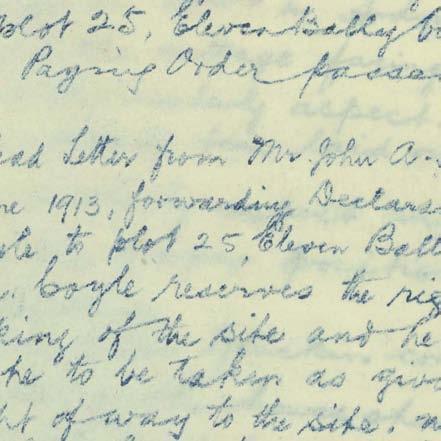 plot 25, Eleven Ballybo
Paying Order passed
ead Letter from Mr John A.
ne 1913, forwarding Declara
ole to plot 25, Eleven Ball
. Coyle reserves the rig
king of the site and he
the to be taken as givi
ht of way to the site.